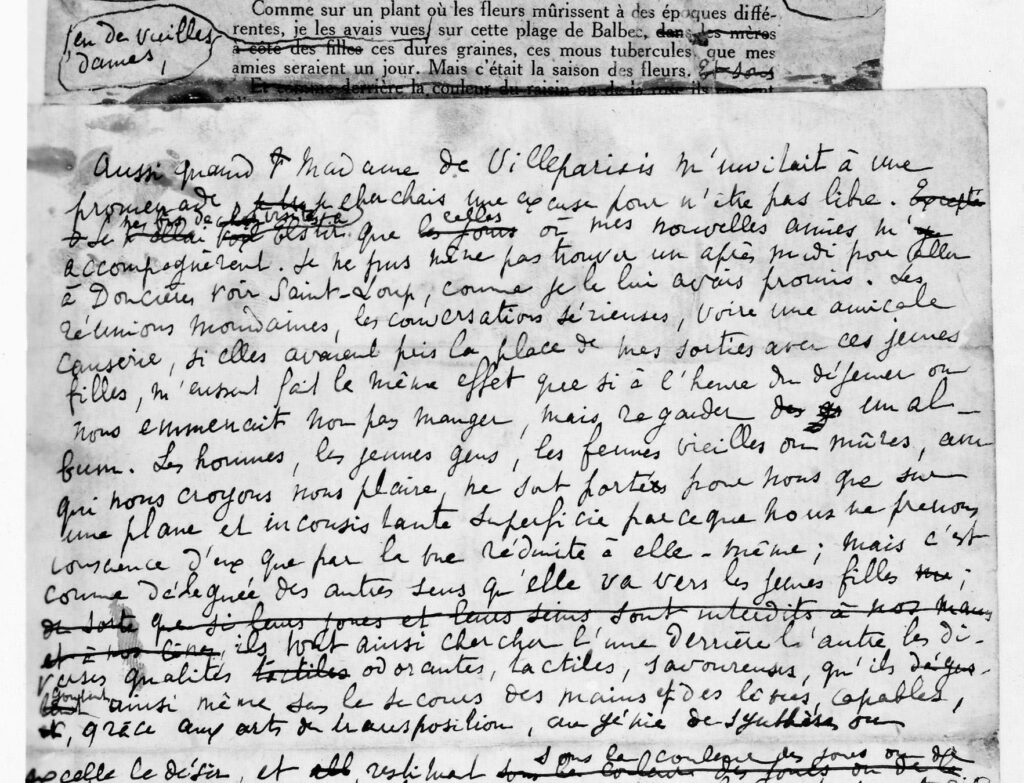 Comme sur un plant où les fleurs mûrissent à des époques diffé-
rentes, je les avais vues, sur cette plage de Balbec, dans les mères
en de vieilles
dames,
à côté des filles ces dures graines, ces mous tubercules, que mes
amies seraient un jour. Mais c'était la saison des fleurs. Et sous
Et comme derrière la couleur du raisin ou de la
Aussi quand Madame de Villeparisis m'invitait à une
promenade je cherchais une excuse pour n'être pas libre. Excepté
Je ne fis de visites à Elstir que celles où mes nouvelles amies m'
les jours
accompagnèrent. Je ne pus même pas trouver un après midi pour aller
à Doncières voir Saint-Loup, comme je le lui avais promis. Les
réunions mondaines, les conversations sérieuses, voire une amicale
causerie, si elles avaient pris la place de mes sorties avec ces jeunes
filles, m'eussent fait le même effet que si à l'heure du déjeuner on
nous emmenait non pas manger, mais regarder des un al-
bum. Les hommes, les jeunes gens, les femmes vieilles ou mûres, avec
qui nous croyons nous plaire, ne sont portés pour nous que sur
une plane et inconsistante superficie parce que nous ne prenons
conscience d'eux que par la vue réduite à elle-même; mais c'est
comme déléguée des autres sens qu'elle va vers les jeunes filles;
de sorte que si leurs joues et leurs seins sont interdits à nos mains
et à nos lèvres, ils vont ainsi chercher l'une derrière l'autre les di-
verses qualités tactiles odorantes, tactiles, savoureuses, qu'ils dégus-
goûtent
ainsi même sans le secours des mains et des lèvres; capables,
et, grâce aux arts de transposition, au génie de synthèse où
excelle le désir, et restituant sous la couleur des joues ou de la